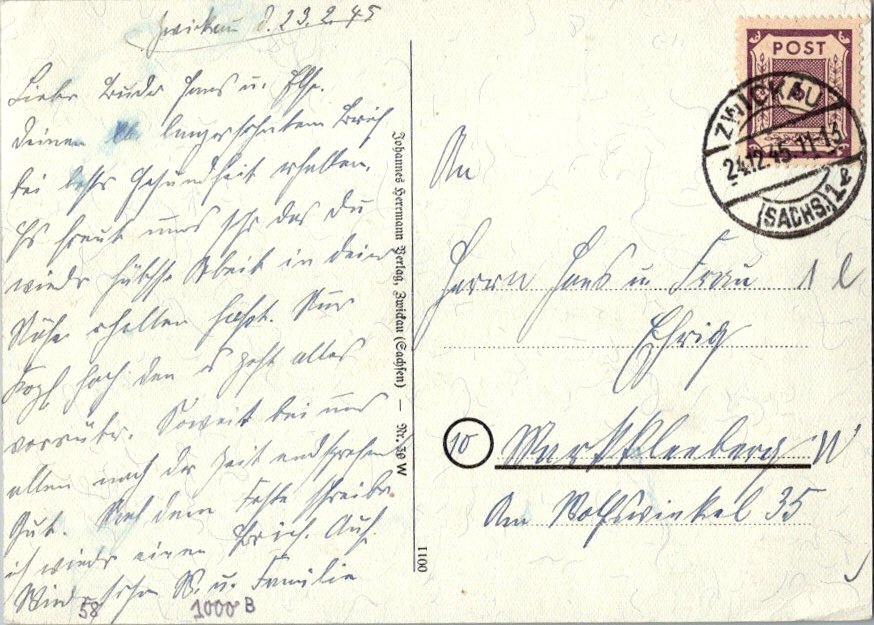 Zwickau d. 23.2.45
Lieber Bruder Hans u. Else.
Deinen langersehnten Brief
bei bester Gesundheit erhalten.
Es freut uns sehr das du
wieder hübsche Arbeit in deiner
Nähe erhalten hast. Nur
Kopf hoch, den es geht alles
vorrüber. Soweit bei uns
allen noch der Zeit entsprechend
Gut. Nach dem Feste schreibe
ich wieder einen Brief. Auf
Wiedersehn W. u. Familie
58 1000 B
Johannes Herrmann Verlag, Zwickau (Sachsen) — Nr. 39 W
1100
POST
ZWICKAU
24.12.45 11-13
(SACHS.) 2
An
Herrn Hans u. Frau
Ehrig
10 Markkleeberg W
Am Wolfswinkel 35